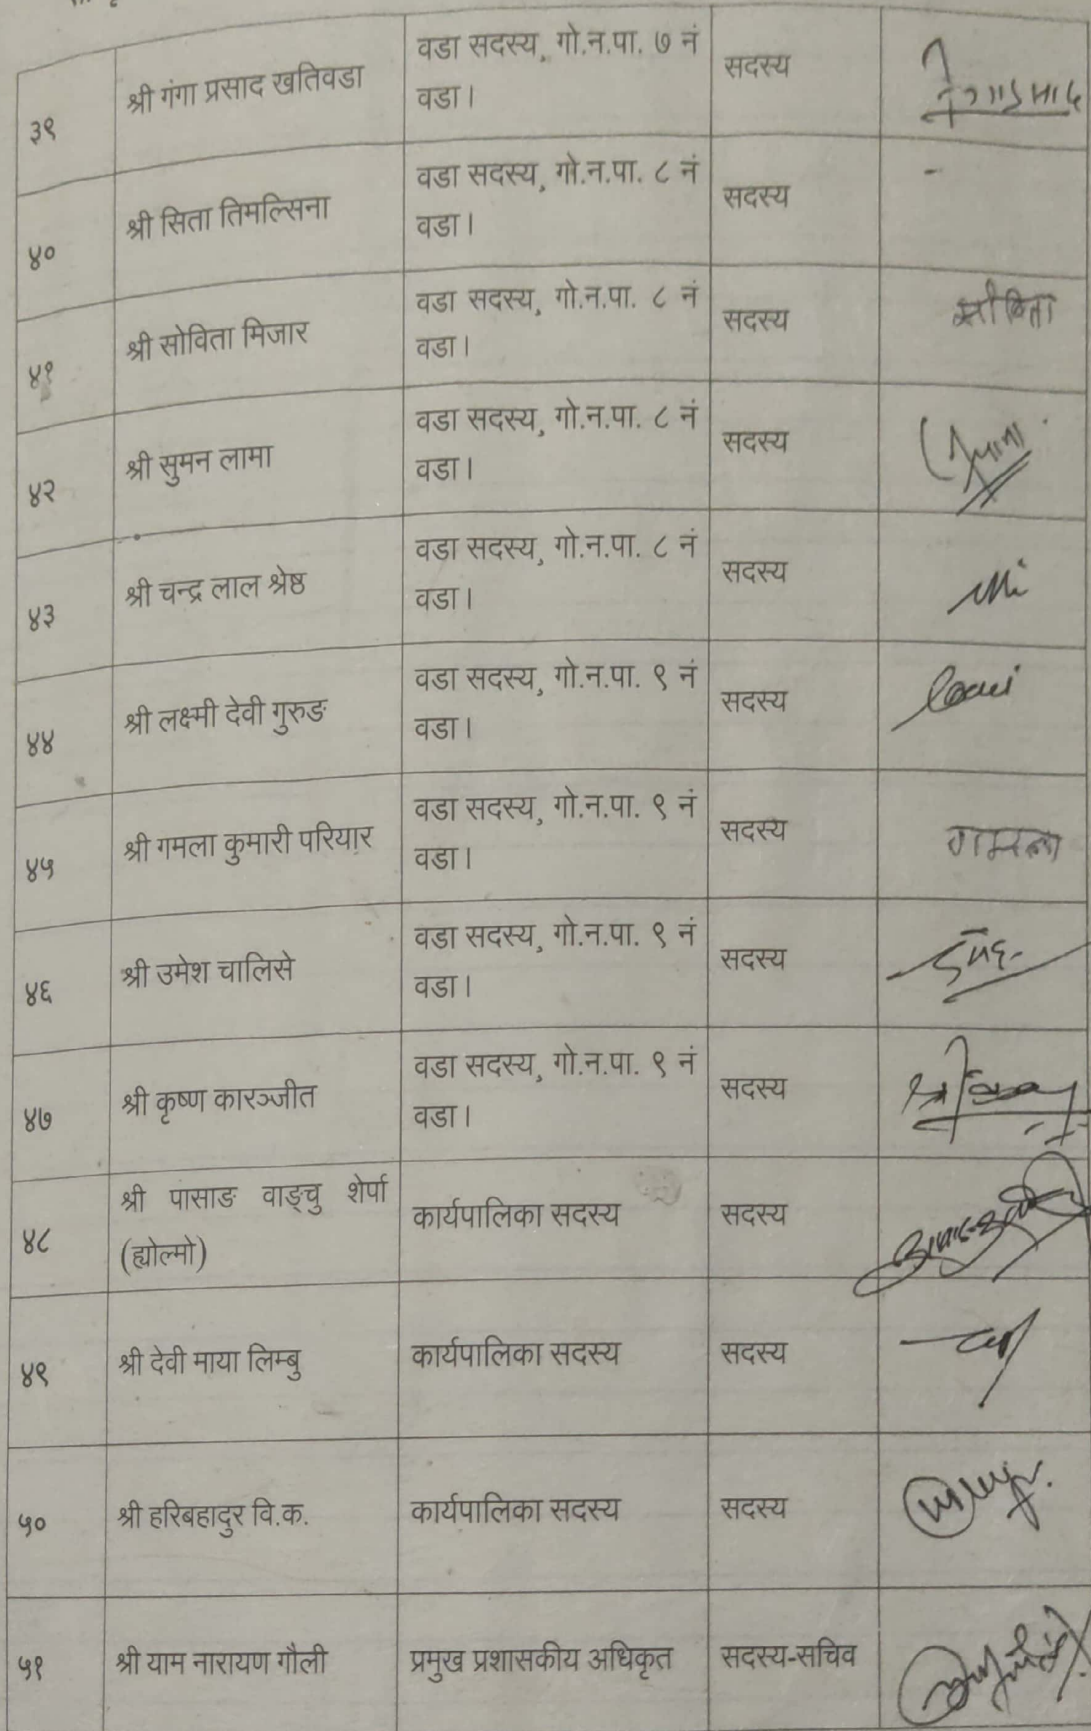 ३९ श्री गंगा प्रसाद खतिवडा वडा सदस्य, गो.न.पा. ७ नं सदस्य
वडा।
४० श्री सिता तिमल्सिना वडा सदस्य, गो.न.पा. ८ नं सदस्य -
वडा।
४१ श्री सोविता मिजार वडा सदस्य, गो.न.पा. ८ नं सदस्य सोविता
वडा।
४२ श्री सुमन लामा वडा सदस्य, गो.न.पा. ८ नं सदस्य
वडा।
४३ श्री चन्द्र लाल श्रेष्ठ वडा सदस्य, गो.न.पा. ८ नं सदस्य
वडा।
४४ श्री लक्ष्मी देवी गुरुङ वडा सदस्य, गो.न.पा. ९ नं सदस्य
वडा।
४५ श्री गमला कुमारी परियार वडा सदस्य, गो.न.पा. ९ नं सदस्य गमला
वडा।
४६ श्री उमेश चालिसे वडा सदस्य, गो.न.पा. ९ नं सदस्य
वडा।
४७ श्री कृष्ण कारञ्जीत वडा सदस्य, गो.न.पा. ९ नं सदस्य
वडा।
४८ श्री पासाङ वाङ्चु शेर्पा कार्यपालिका सदस्य सदस्य
(ह्योल्मो)
४९ श्री देवी माया लिम्बु कार्यपालिका सदस्य सदस्य
५० श्री हरिबहादुर वि.क. कार्यपालिका सदस्य सदस्य
५१ श्री याम नारायण गौली प्रमुख प्रशासकीय अधिकृत सदस्य-सचिव